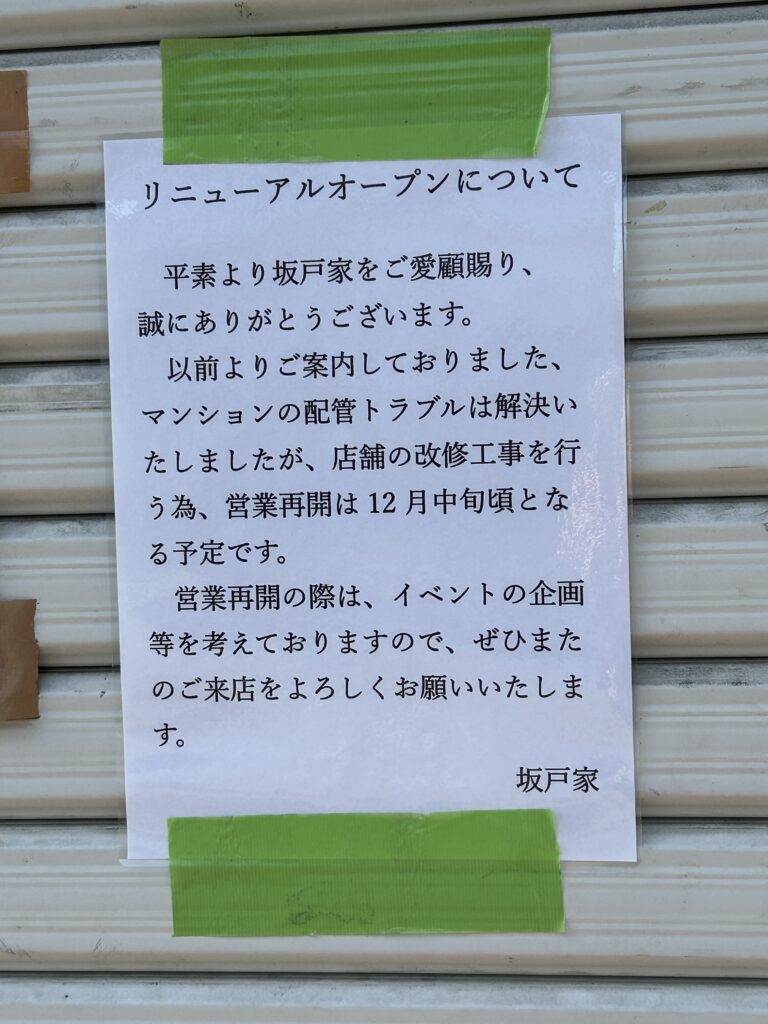 リニューアルオープンについて
平素より坂戸家をご愛顧賜り、
誠にありがとうございます。
以前よりご案内しておりました、
マンションの配管トラブルは解決い
たしましたが、店舗の改修工事を行
う為、営業再開は 12 月中旬頃とな
る予定です。
営業再開の際は、イベントの企画
等を考えておりますので、ぜひまた
のご来店をよろしくお願いいたしま
す。
坂戸家